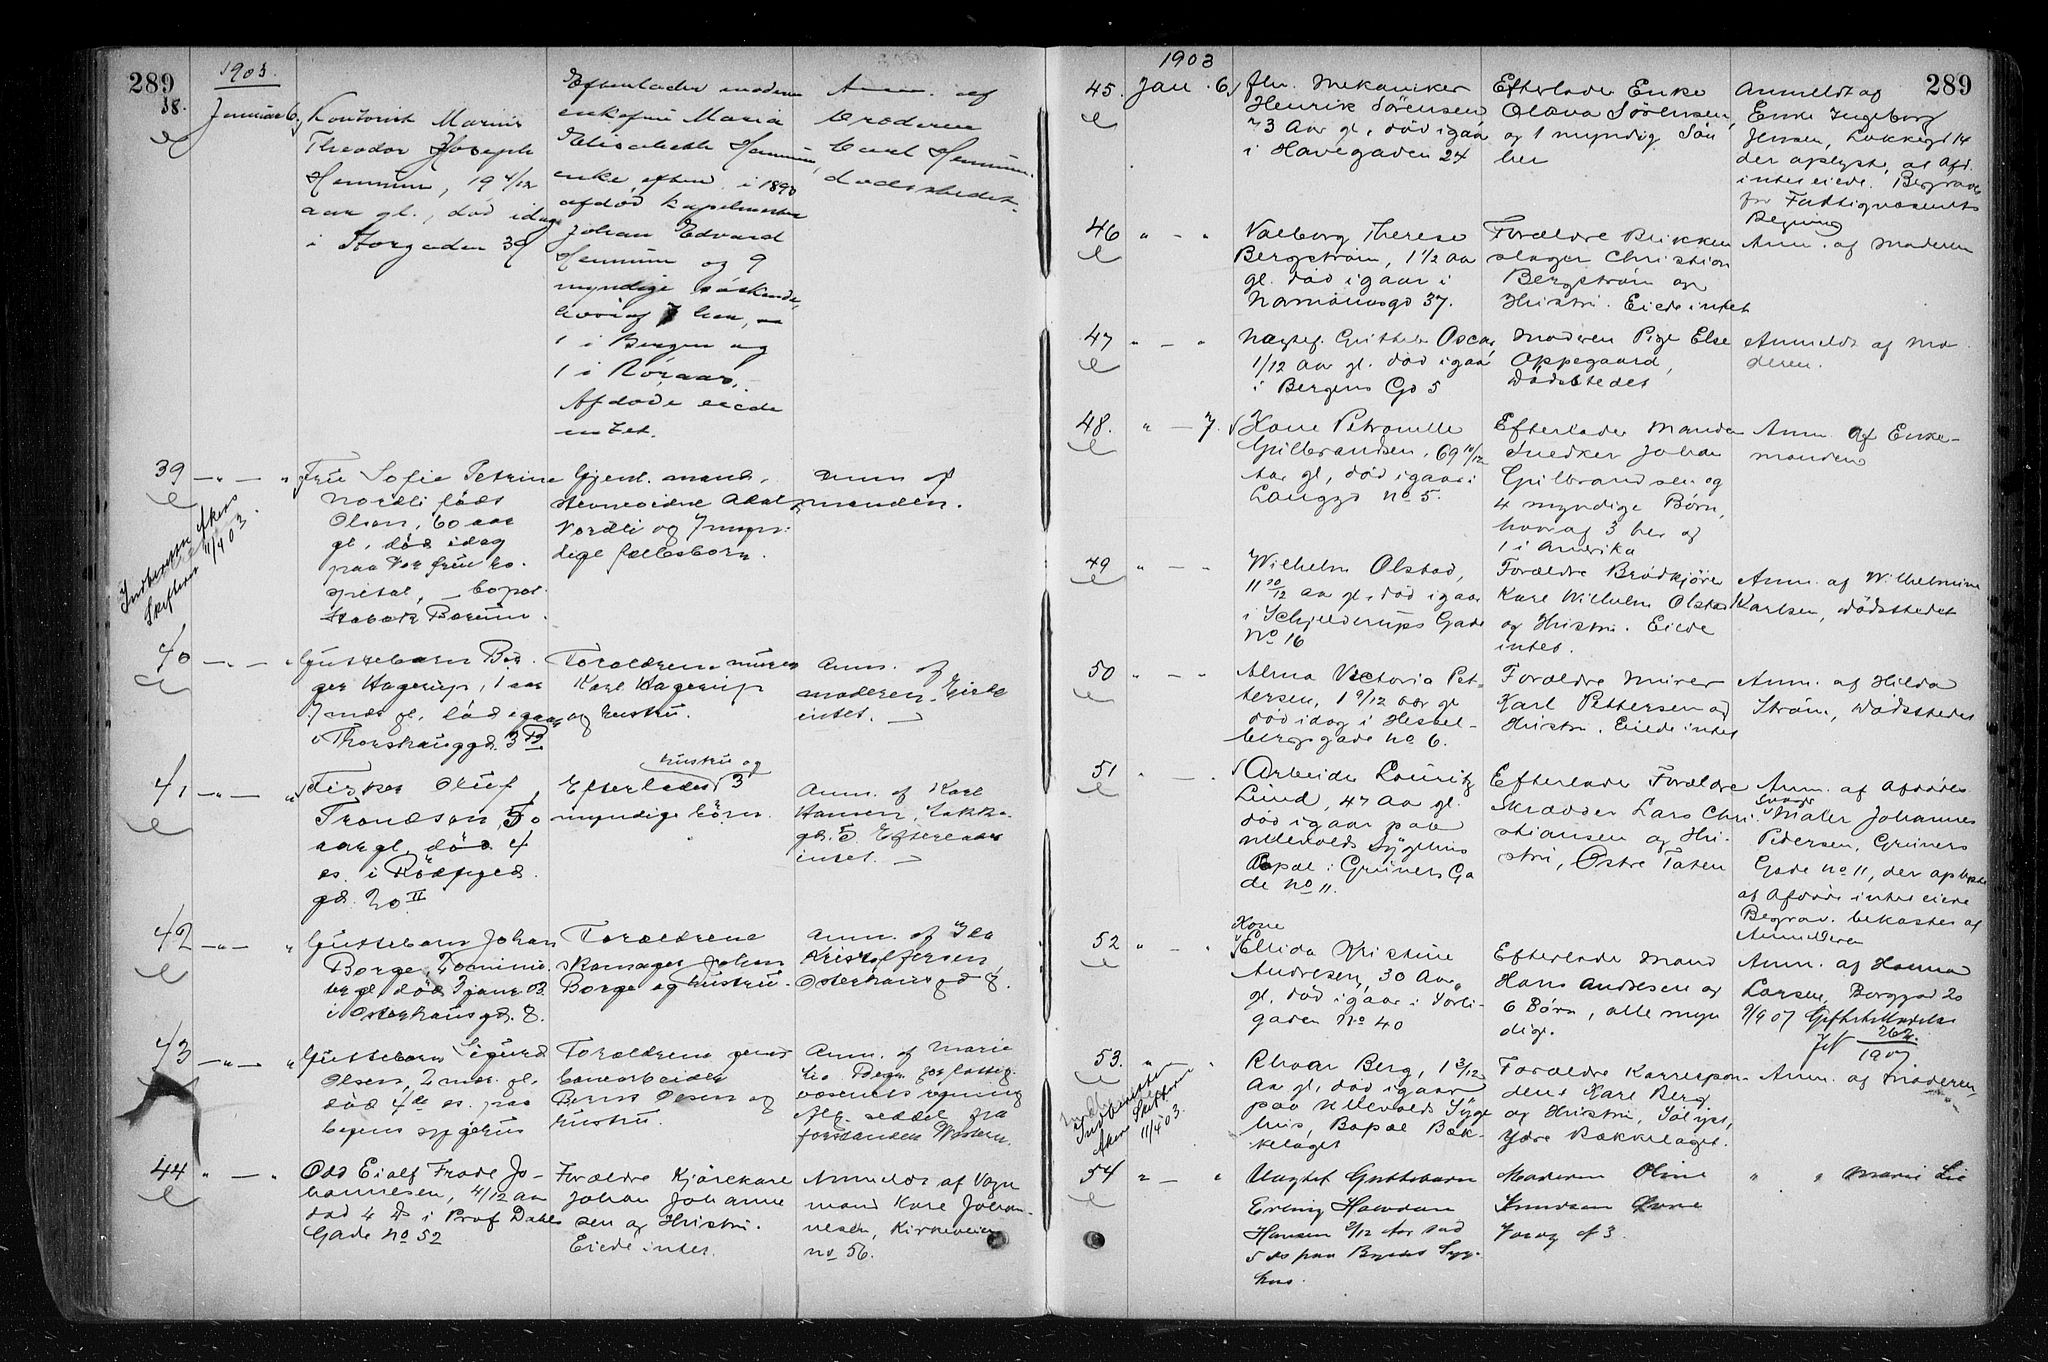 289
1903.
38.
Januar 6,
Kontorist Marius
Theodor Joseph
Hennum, 19 4/12
aar gl., död idag
i Storgaden 39
Efterlader moderen
enkefru Maria
Elisabeth Hennum,
enke efter i 1890
afdöd kapelmester
Johan Edvard
Hennum og 9
myndige söskende,
hvoraf 7 her,
1 i Bergen og
1 i Röraas.
Afdöde eiede
intet.
Anm. af
broderen
Carl Hennum,
dödsstedet.
39
Fru Sofie Petrine
Nordli födt
Olsen, 60 aar
gl., död idag
paa Vor frue ho-
spital, bopæl
Stabæk Bærum.
Gjenl. mand,
Nordli og 7 myn-
dige fællesbörn.
Anm af
manden.
Indberettet Aker
Skifteret 11/4 03.
40
Guttebarn Bir-
ger Hagerup, 1 aar
7 mdr gl. död igaar
i Thorshauggd. 3
Forældrene murer
Karl Hagerup
og hustru.
Anm. af
moderen. Eiede
intet.
41
Fisker Oluf
Trondsen, 50
aar gl. död 4
ds. i Rödfyld
gd. 20 II
Efterlader hustru og 3
myndige börn.
Anm. af Karl
Hansen, Lakke-
gd. 5. Efterlader
intet.
42
Guttebarn Johan
Borge,
gl. död 3 janr 03
i Osterhausgd. 8.
Forældrene
skomager Johan
Borge og hustru.
Anm. af Ida
Kristoffersen
Osterhausgd 8.
43
Guttebarn Sigurd
Olsen, 2 mdr. gl.
död 4de ds. paa
byens sygehus
Forældrene jern-
banearbeider
Bernt Olsen og
hustru.
Anm. af Marie
Lie Begr. for fattig-
væsenets regning
iflg. seddel fra
forstander Western.
44
Odd Eialf Frode Jo-
hannesen, 4/12 aar
död 4 ds i Prof Dahls
Gade no 52
Forældre Kjörekarl
Johan Johanne
sen og Hustru.
Eiede intet.
Anmeldt af Vogn
mand Karl Johan-
nesen, Kirkeveien
no 56.
1903
289
45.
Jan. 6,
fhv. Mekaniker
Henrik Sörensen
73 Aar gl., död igaar
i Havegaden 24
Efterlader Enke
Olava Sörensen,
og 1 myndig Sön
her
Anmeldt af
Enke Ingeborg
Jensen, Lakkegd 14
der oplyste, at Afd.
intet eiede. Begraves
for Fattigvæsenets
Regning
46
Valborg Therese
Bergström, 1 1/2 aar
gl. död igaar i
Mariboesgd 37.
Forældre Blikken
slager Christian
Bergström og
Hustru. Eiede intet
Anm. af Moderen
47
Uægtef. Guttebn Oscar
1/12 Aar gl. död igaar
i Bergens Gd 5
Moderen Pige Else
Oppegaard,
Dödsstedet
Anmeldt af Mo
deren.
48.
7.
Kone Petronelle
Gulbrandsen, 69 10/12
Aar gl, död igaar i
Langgd no 5.
Efterlader Manden
Snedker Johan
Gulbrandsen og
4 myndige Börn,
hvoraf 3 her og
1 i Amerika
Anm. af Enke-
manden
49
Wilhelm Olstad,
11 10/12 aar gl., död igaar
i Schjelderups Gade
No 16
Forældre Brödkjörer
Karl Wilhelm Olstad
og Hustru. Eiede
intet.
Anm. af Wilhelmine
Karlsen, Dödsstedet
50
Alma Victoria Pet-
tersen, 1 9/12 aar gl
död idag i Hessel-
bergsgade no 6.
Forældre Murer
Karl Pettersen og
Hustru. Eiede intet
Anm. af Hilda
Ström, Dödsstedet
51
Arbeider Lauritz
Lund, 47 Aar gl.
död igaar paa
Ullevolds Sygehus
Bopæl i Grüners Ga
de no 11.
Efterlader Forældre
Skrædder Lars Chri-
stiansen og Hu-
stru, Östre Toten
Anm. af Afdödes
Svoger Maler Johannes
Pedersen, Grüners
Gade no 11, der oplyste
at Afdöde intet eiede
Begrav. bekostes af
Anmelderen
52
Kone
Ellida Kristine
Andresen, 30 Aar
gl, död igaar i Sorli-
gaden No 40
Efterlader Mand
Hans Andresen og
6 Börn, alle umyn
dige.
Anm. af Hanna
Larsen, Borggd 20
53.
Roar Berg, 1 3/12
Aar gl, död igaar
paa Ullevolds Syge
hus, Bopæl Bæk-
kelaget
Forældre Korrespon-
dent Karl Berg
og Hustru, Sollyst,
Ydre Bækkelaget.
Anm. af Moderen
Indberettet
Akers Skifteret
11/4 03.
54
Uægtef Guttebarn
Erling Hansen 2/12 Aar död
5 ds paa Byens Syge-
hus.
Moderen Oline
Knudsen
Marie Lie